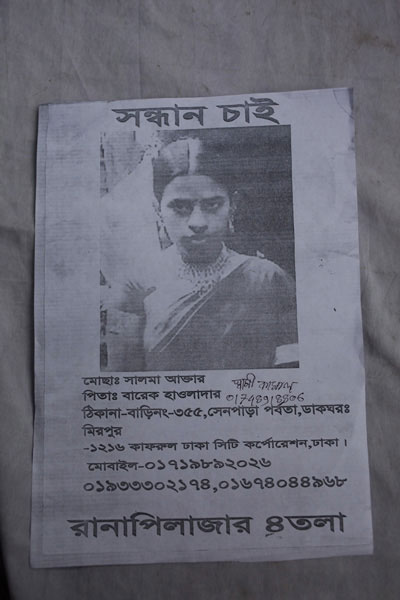 সন্ধান চাই
মোছাঃ সালমা আক্তার
স্বামী কামাল
পিতাঃ বারেক হাওলাদার
ঠিকানা-বাড়িনং-৩৫৫,সেনপাড়া পর্বতা,ডাকঘরঃ
মিরপুর
-১২১৬ কাফরুল ঢাকা সিটি কর্পোরেশন,ঢাকা।
মোবাইল-০১৭১৯৮৯২০২৬
০১৯৩৩৩০২১৭৪,০১৬৭৪০৪৪৯৬৮
রানাপিলাজার ৪তলা